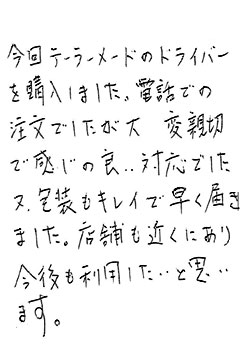 今回テーラーメードのドライバー
を購入しました。電話での
注文でしたが大 変親切
で感じの良い対応でした
又、包装もキレイで早く届き
ました。店舗も近くにあり
今後も利用したいと思い
ます。